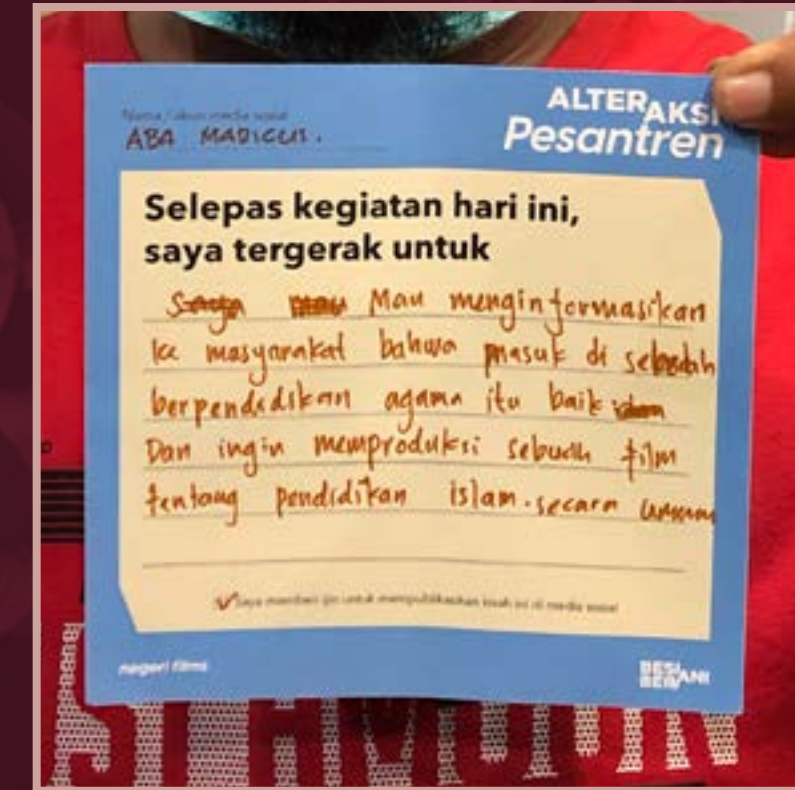 Nama / akun media sosial
ABA MADICUS.
ALTERAKSI
Pesantren
Selepas kegiatan hari ini,
saya tergerak untuk
Mau menginformasikan
ke masyarakat bahwa masuk di sebuah
berpendidikan agama itu baik
Dan ingin memproduksi sebuah film
tentang pendidikan islam. secara umum
Saya memberi ijin untuk mempublikasikan kisah ini di media sosial
negeri films
BESI
BERANI